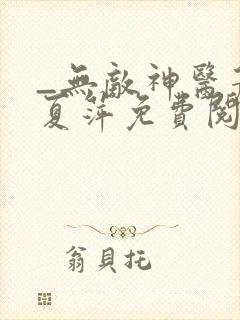 _無敵神醫
夏萍免費閱
翁貝托